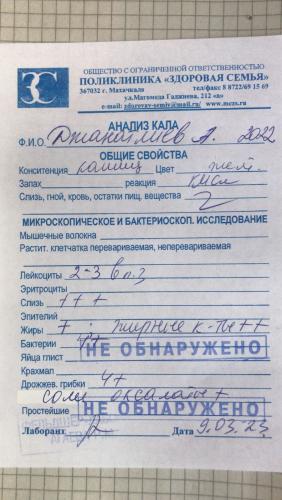 ЗС
ОБЩЕСТВО С ОГРАНИЧЕННОЙ ОТВЕТСТВЕННОСТЬЮ
ПОЛИКЛИНИКА «ЗДОРОВАЯ СЕМЬЯ»
367032 г. Махачкала тел/факс 8 8722/69 15 69
ул.Магомеда Гаджиева, 212 «а»
e-mail: zdorovay-semiy@mail.ru/ www.mczs.ru
АНАЛИЗ КАЛА
Ф.И.О. А. 2022
ОБЩИЕ СВОЙСТВА
Конситенция кашиц Цвет жел.
Запах реакция кисл
Слизь, гной, кровь, остатки пищ. вещества
МИКРОСКОПИЧЕСКОЕ И БАКТЕРИОСКОП. ИССЛЕДОВАНИЕ
Мышечные волокна
Растит. клетчатка перевариваемая, неперевариваемая
Лейкоциты 2-3 в п.з
Эритроциты
Слизь +++
Эпителий
Жиры + ; жирные к-ты ++
Бактерии ++
Яйца глист НЕ ОБНАРУЖЕНО
Крахмал
Дрожжев. грибки 4+
соли оксалаты +
Простейшие НЕ ОБНАРУЖЕНО
Лаборант Дата 9.03.23